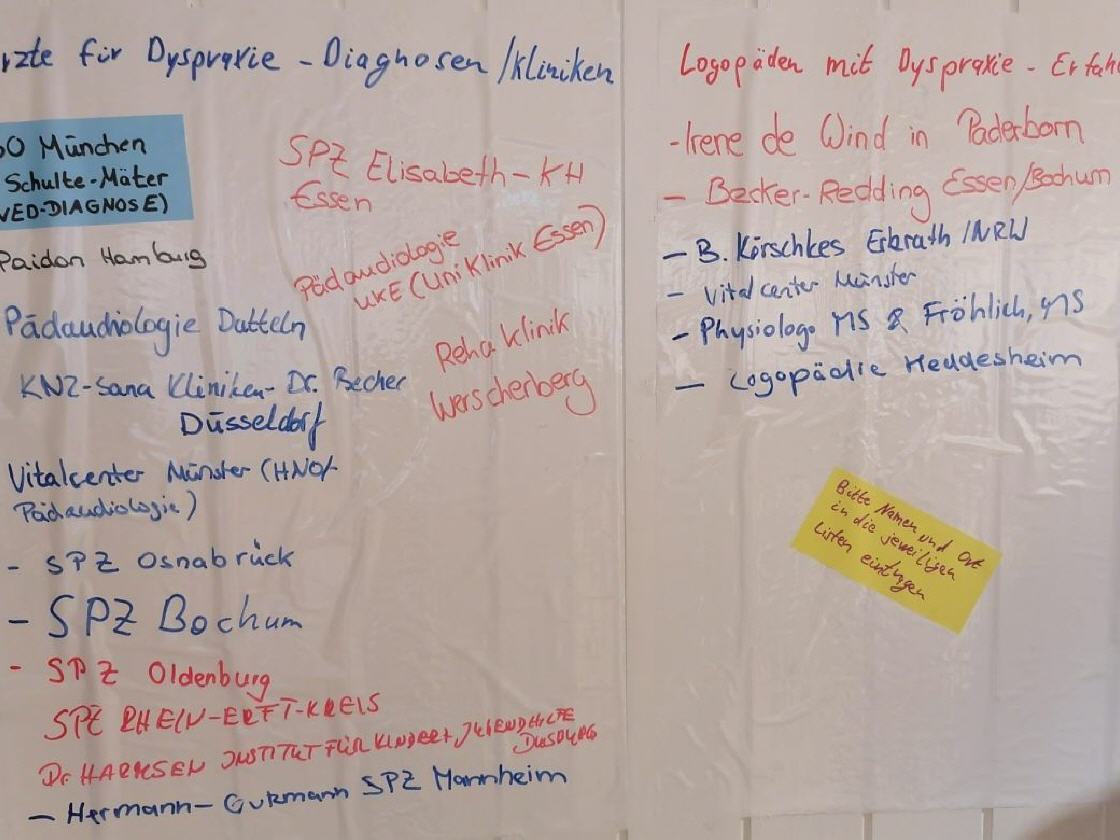 rzte für Dyspraxie - Diagnosen/Kliniken
O München
Schulte-Mäter
VED-DIAGNOSE)
Paidon Hamburg
Pädaudiologie Datteln
KNZ-Sana Kliniken- Dr. Becher
Düsseldorf
Vitalcenter Münster (HNO/
Pädaudiologie)
- SPZ Osnabrück
- SPZ Bochum
- SPZ Oldenburg
SPZ RHEIN-ERFT-KREIS
Dr. HARMSEN INSTITUT FÜR KINDER+JUGENDHILFE
DUISBURG
- Hermann- Gutzmann SPZ Mannheim
SPZ Elisabeth-KH
Essen
Pädaudiologie
UKE (Uniklinik Essen)
Reha Klinik
Werscherberg
Logopäden mit Dyspraxie - Erfah
-Irene de Wind in Paderborn
- Becker-Redding Essen/Bochum
- B. Körschkes Erkrath/NRW
- Vitalcenter Münster
- Physiologo MS & Fröhlich, MS
- Logopädie Heddesheim
Bitte Namen und Ort
in die jeweiligen
Listen eintragen